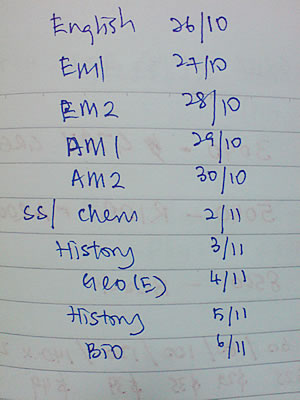 English 26/10
EM1 27/10
EM2 28/10
AM1 29/10
AM2 30/10
SS/ Chem 2/11
History 3/11
GEO (E) 4/11
History 5/11
BIO 6/11